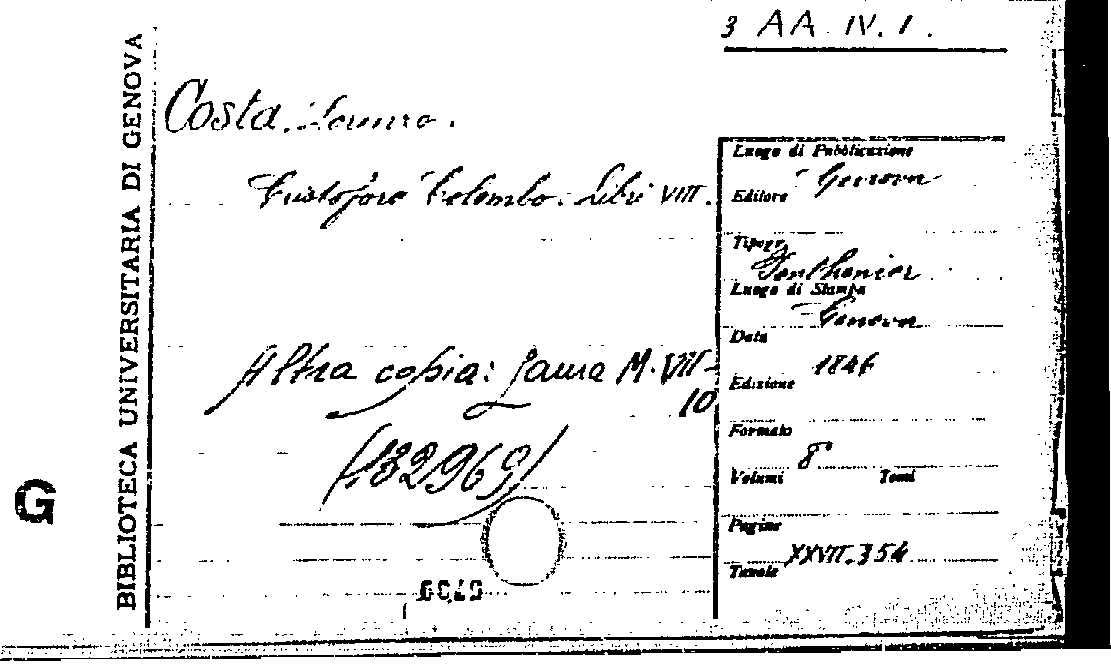 3 AA. IV. 1.
BIBLIOTECA UNIVERSITARIA DI GENOVA
G
Costa. Lorenzo.
Cristoforo Colombo. Libri VIII.
Altra copia: Gaura M. VII-
10
(132969)
Luogo di Pubblicazione
Genova
Editore
Tipogr.
Ponthenier
Luogo di Stampa
Genova
Data
1846
Edizione
Formato
8°
Volumi Tomi
Pagine
XXVII. 354
Tavole